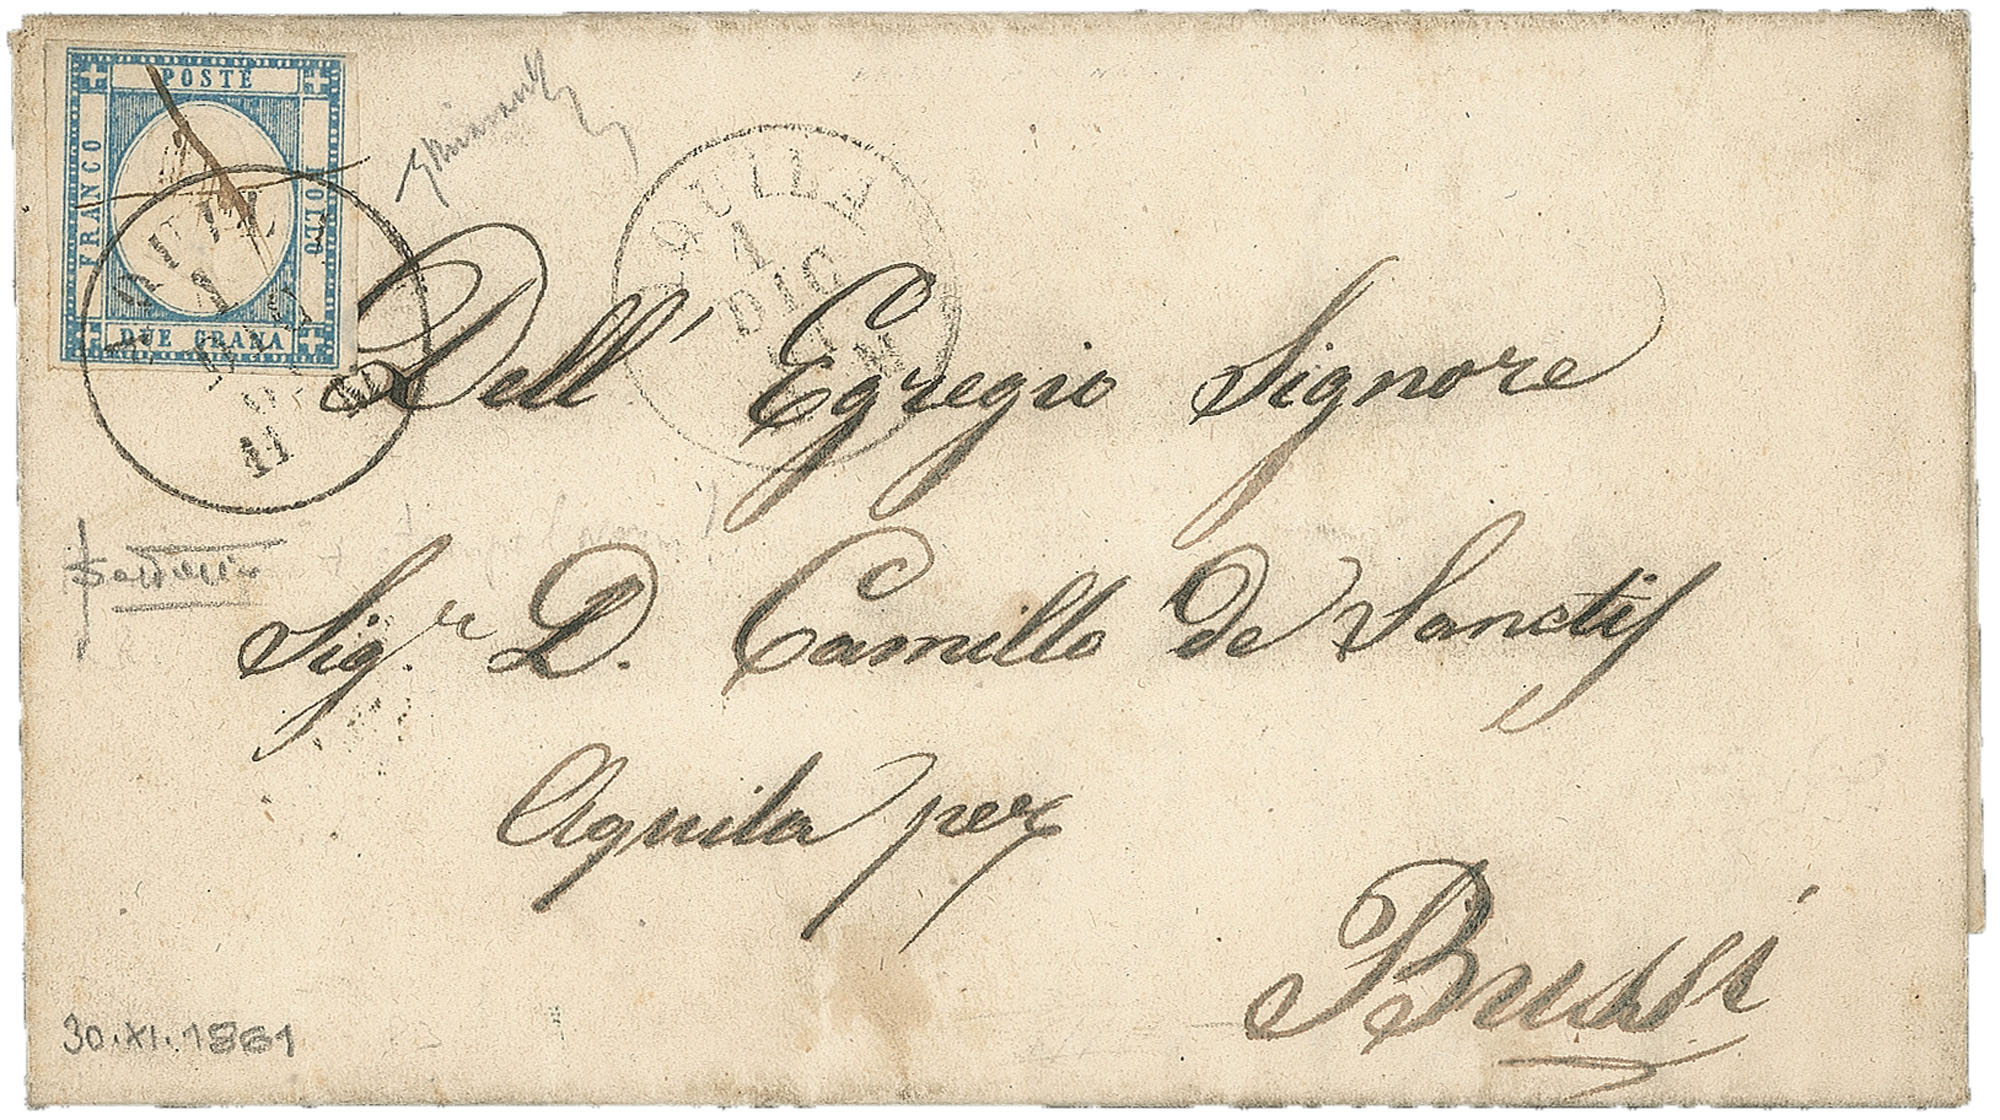 POSTE
FRANCO
BOLLO
DUE GRANA
11
1
DIC
Dell' Egregio Signore
Sig.r D. Camillo de Sanctis
Aquila per
Bussi
30.XI.1861